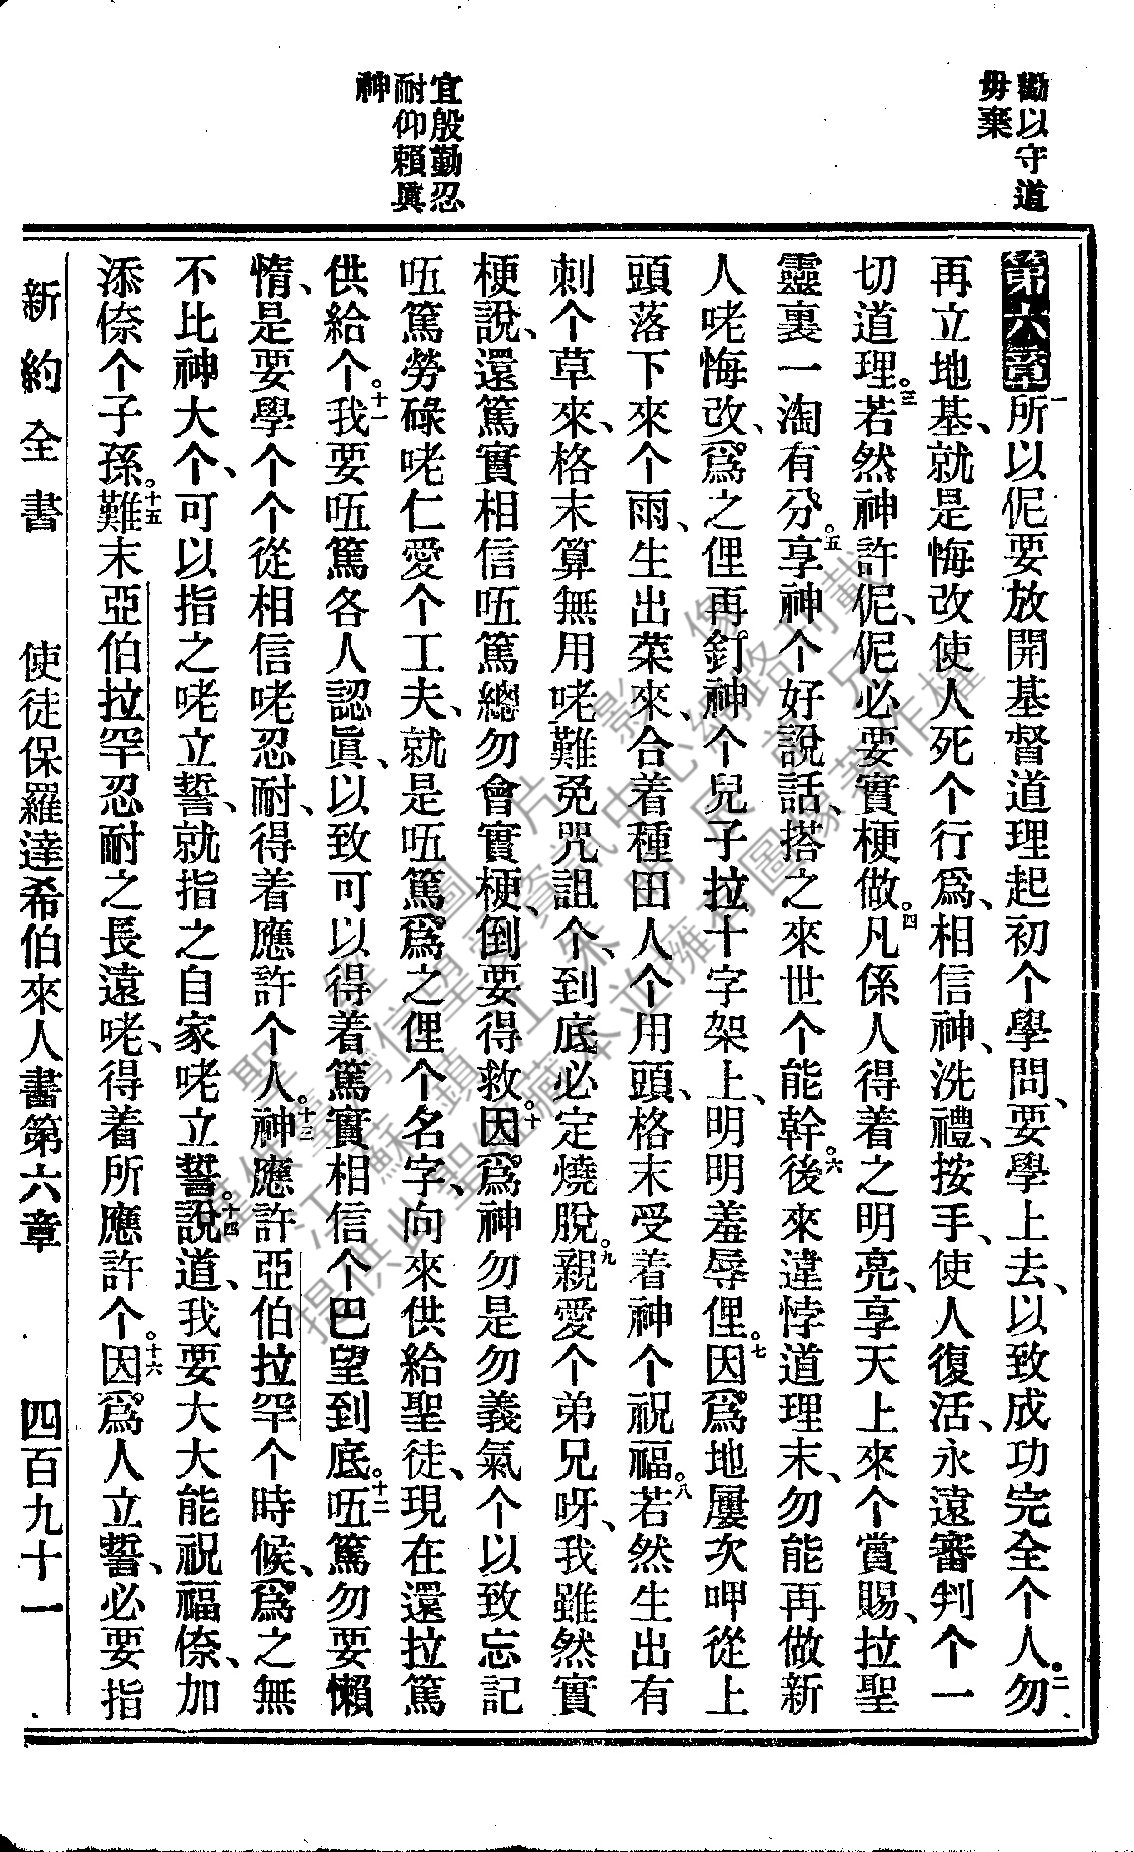 勸以守道
毋棄
宜殷勤忍
耐仰賴眞
神
第六章一所以伲要放開基督道理起初个學問、要學上去、以致成功完全个人。二勿
再立地基、就是悔改使人死个行爲、相信神、洗禮、按手、使人復活、永遠審判个一
切道理。三若然神許伲、伲必要實梗做。四凡係人得着之明亮、享天上來个賞賜、拉聖
靈裏一淘有分。五享神个好說話、搭之來世个能幹。六後來違悖道理末、勿能再做新
人咾悔改、爲之俚再釘神个兒子拉十字架上、明明羞辱俚。七因爲地屢次呷從上
頭落下來个雨、生出菜來、合着種田人个用頭、格末受着神个祝福。八若然生出有
刺个草來、格末算無用咾難免咒詛个、到底必定燒脫。九親愛个弟兄呀、我雖然實
梗說、還篤實相信㕶篤總勿會實梗、倒要得救。十因爲神勿是勿義氣个以致忘記
㕶篤勞碌咾仁愛个工夫、就是㕶篤爲之俚个名字、向來供給聖徒、現在還拉篤
供給个。十一我要㕶篤各人認眞、以致可以得着篤實相信个巴望到底。十二㕶篤勿要懶
惰、是要學个个從相信咾忍耐、得着應許个人。十三神應許亞伯拉罕个時候、爲之無
不比神大个、可以指之咾立誓、就指之自家咾立誓。十四說道、我要大大能祝福倷、加
添倷个子孫。十五難末亞伯拉罕忍耐之長遠咾、得着所應許个。十六因爲人立誓、必要指
新約全書 使徒保羅達希伯來人書第六章 四百九十一
聖經圖片影像
江蘇鎮江朱明民弟兄